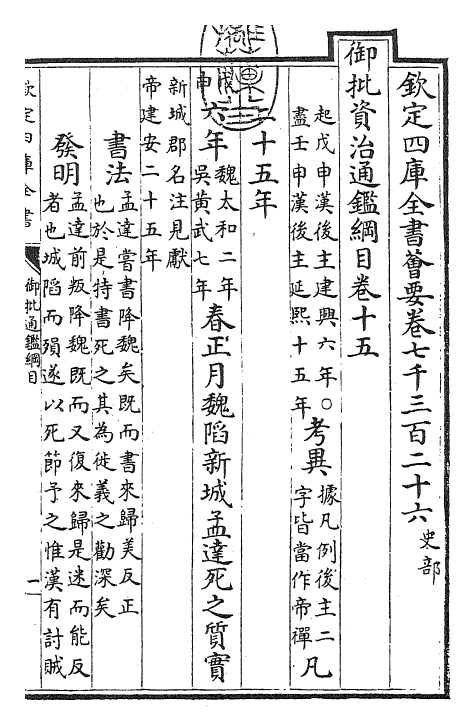 欽定四庫全書薈要卷七千三百二十六 史部
御批資治通鑑綱目卷十五
起戊申漢後主建興六年○
盡壬申漢後主延熙十五年
考異 據凡例後主二
字皆當作帝禪 凡
二十五年
戊申
六年 魏太和二年
吳黃武七年
春正月魏陷新城孟達死之 質實
新城郡名注見獻
帝建安二十五年
書法 孟達嘗書降魏矣既而書來歸美反正
也於是特書死之其為徙義之勸深矣
發明 孟達前叛降魏既而又復來歸是迷而能反
者也城陷而殞遂以死節予之惟漢有討賊
欽定四庫全書
御批通鑑綱目
一